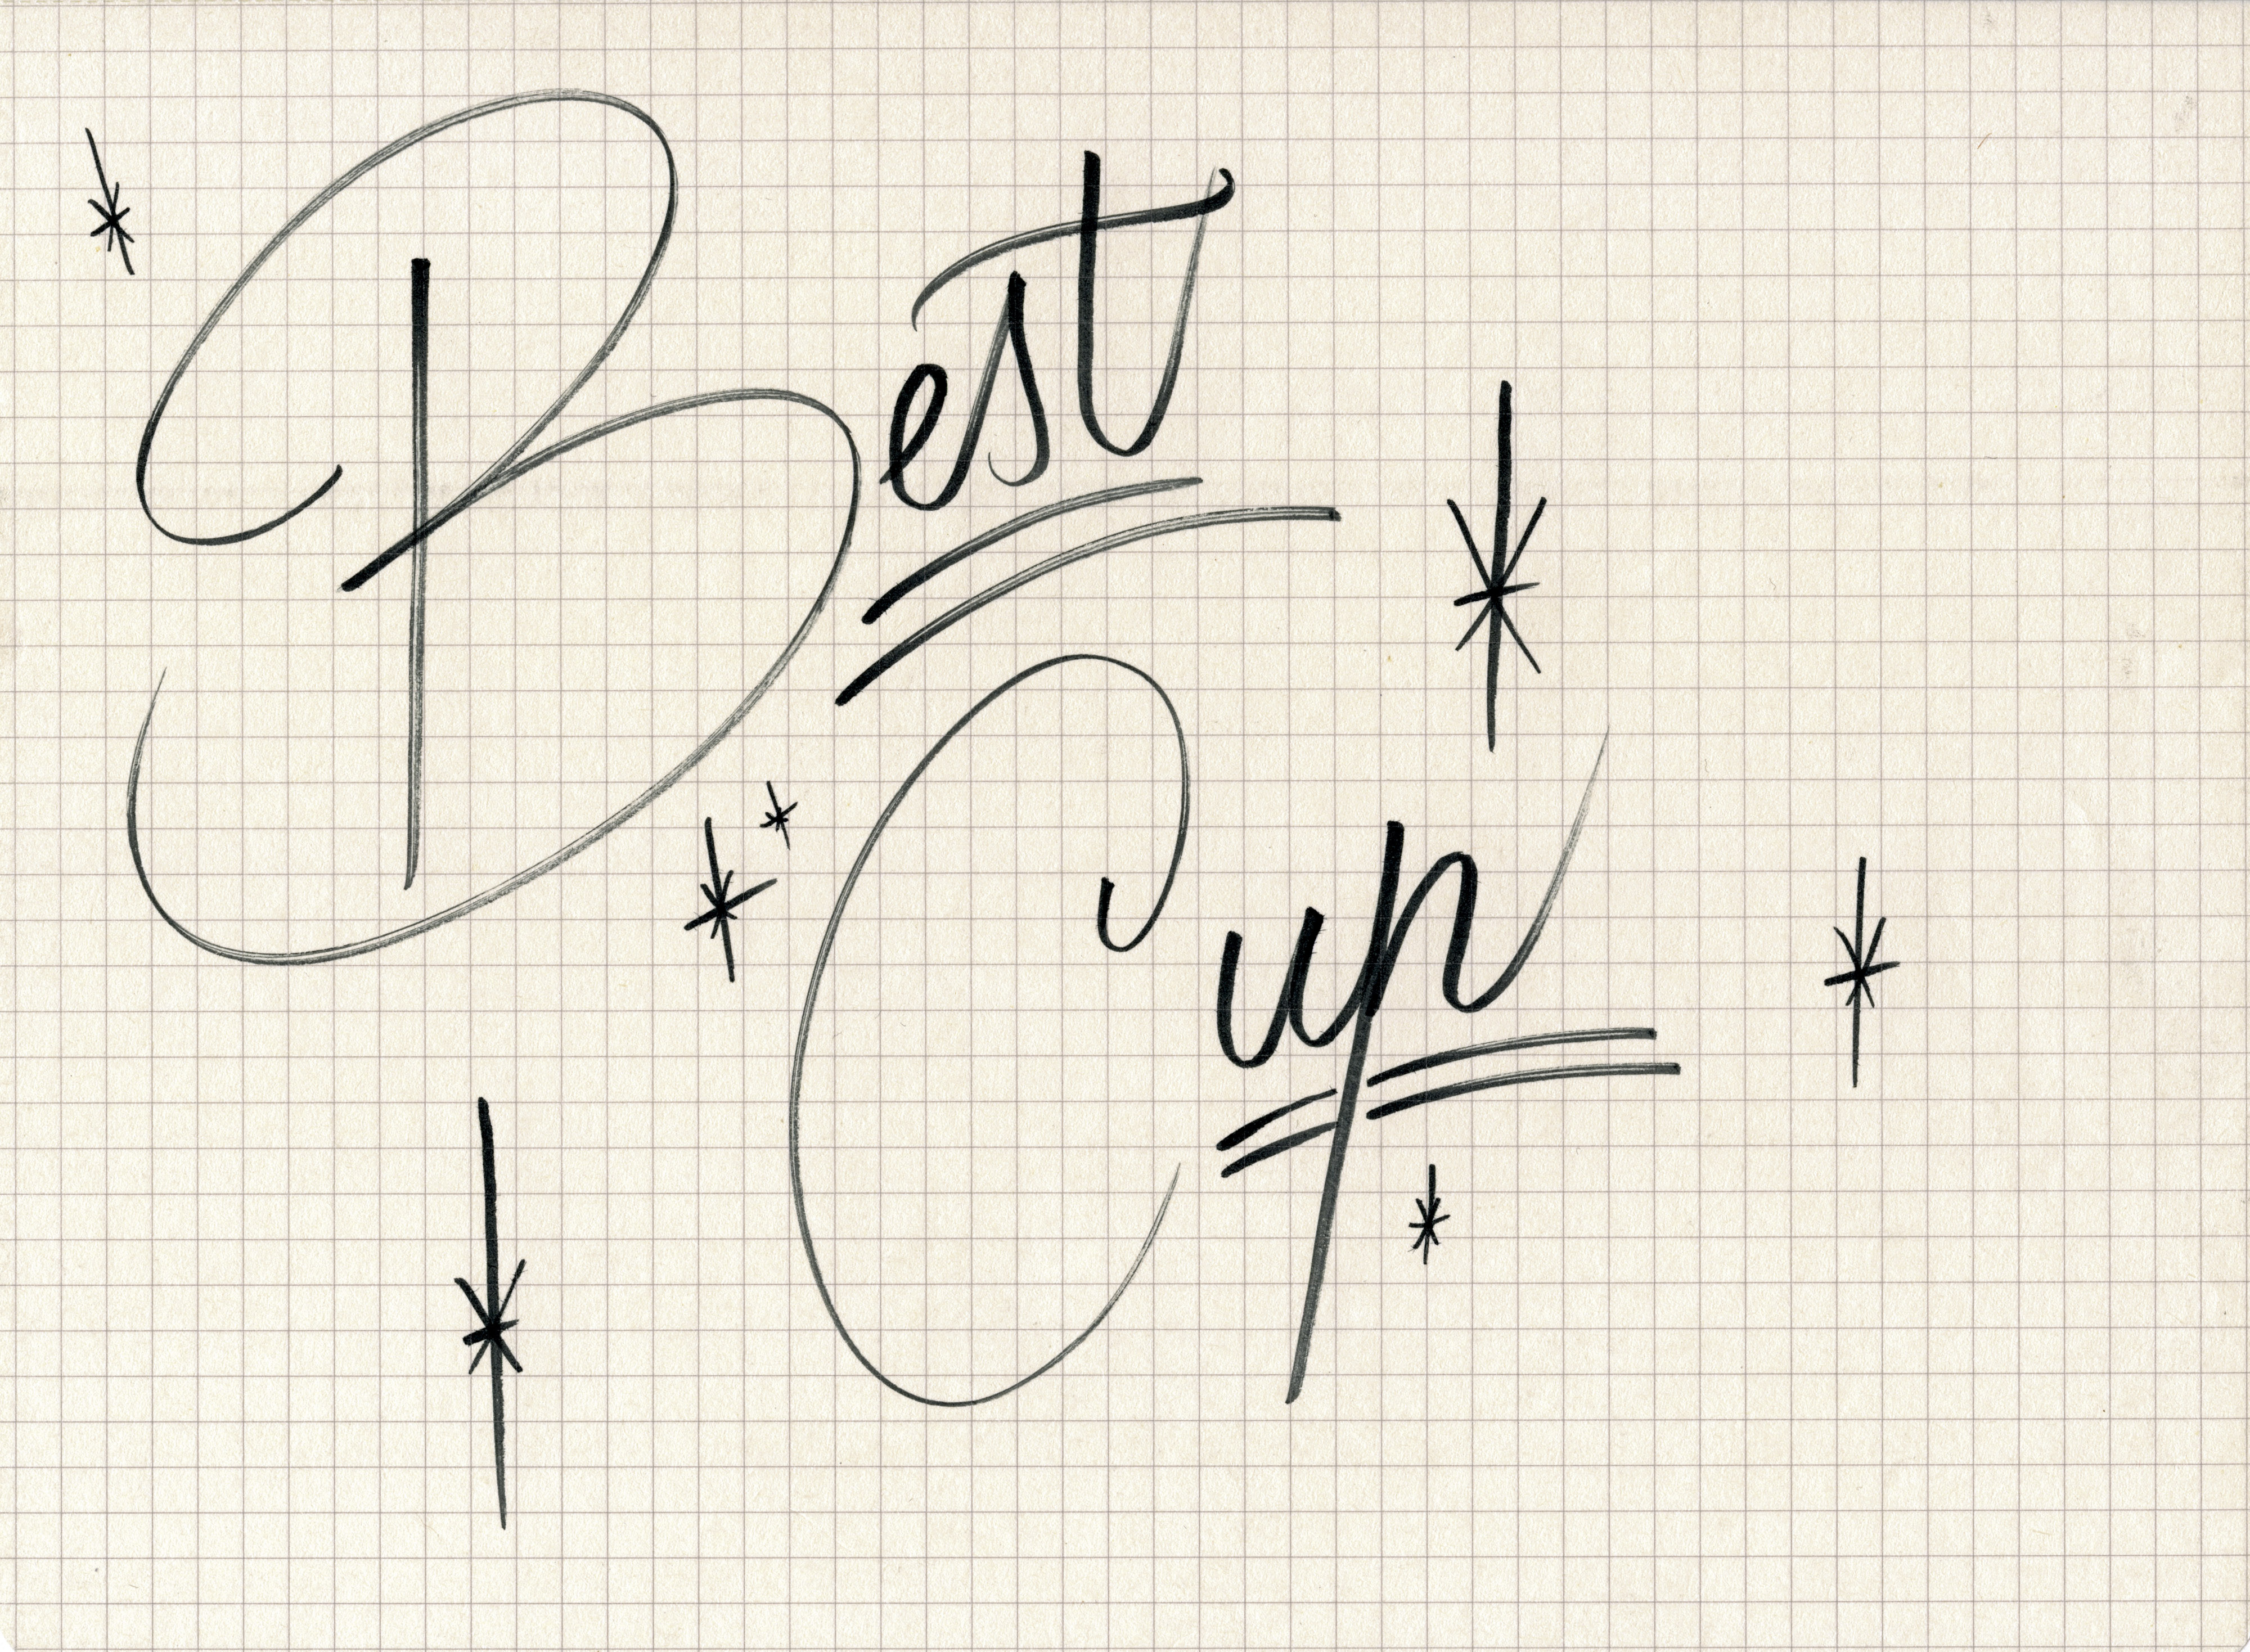 Best
Cup